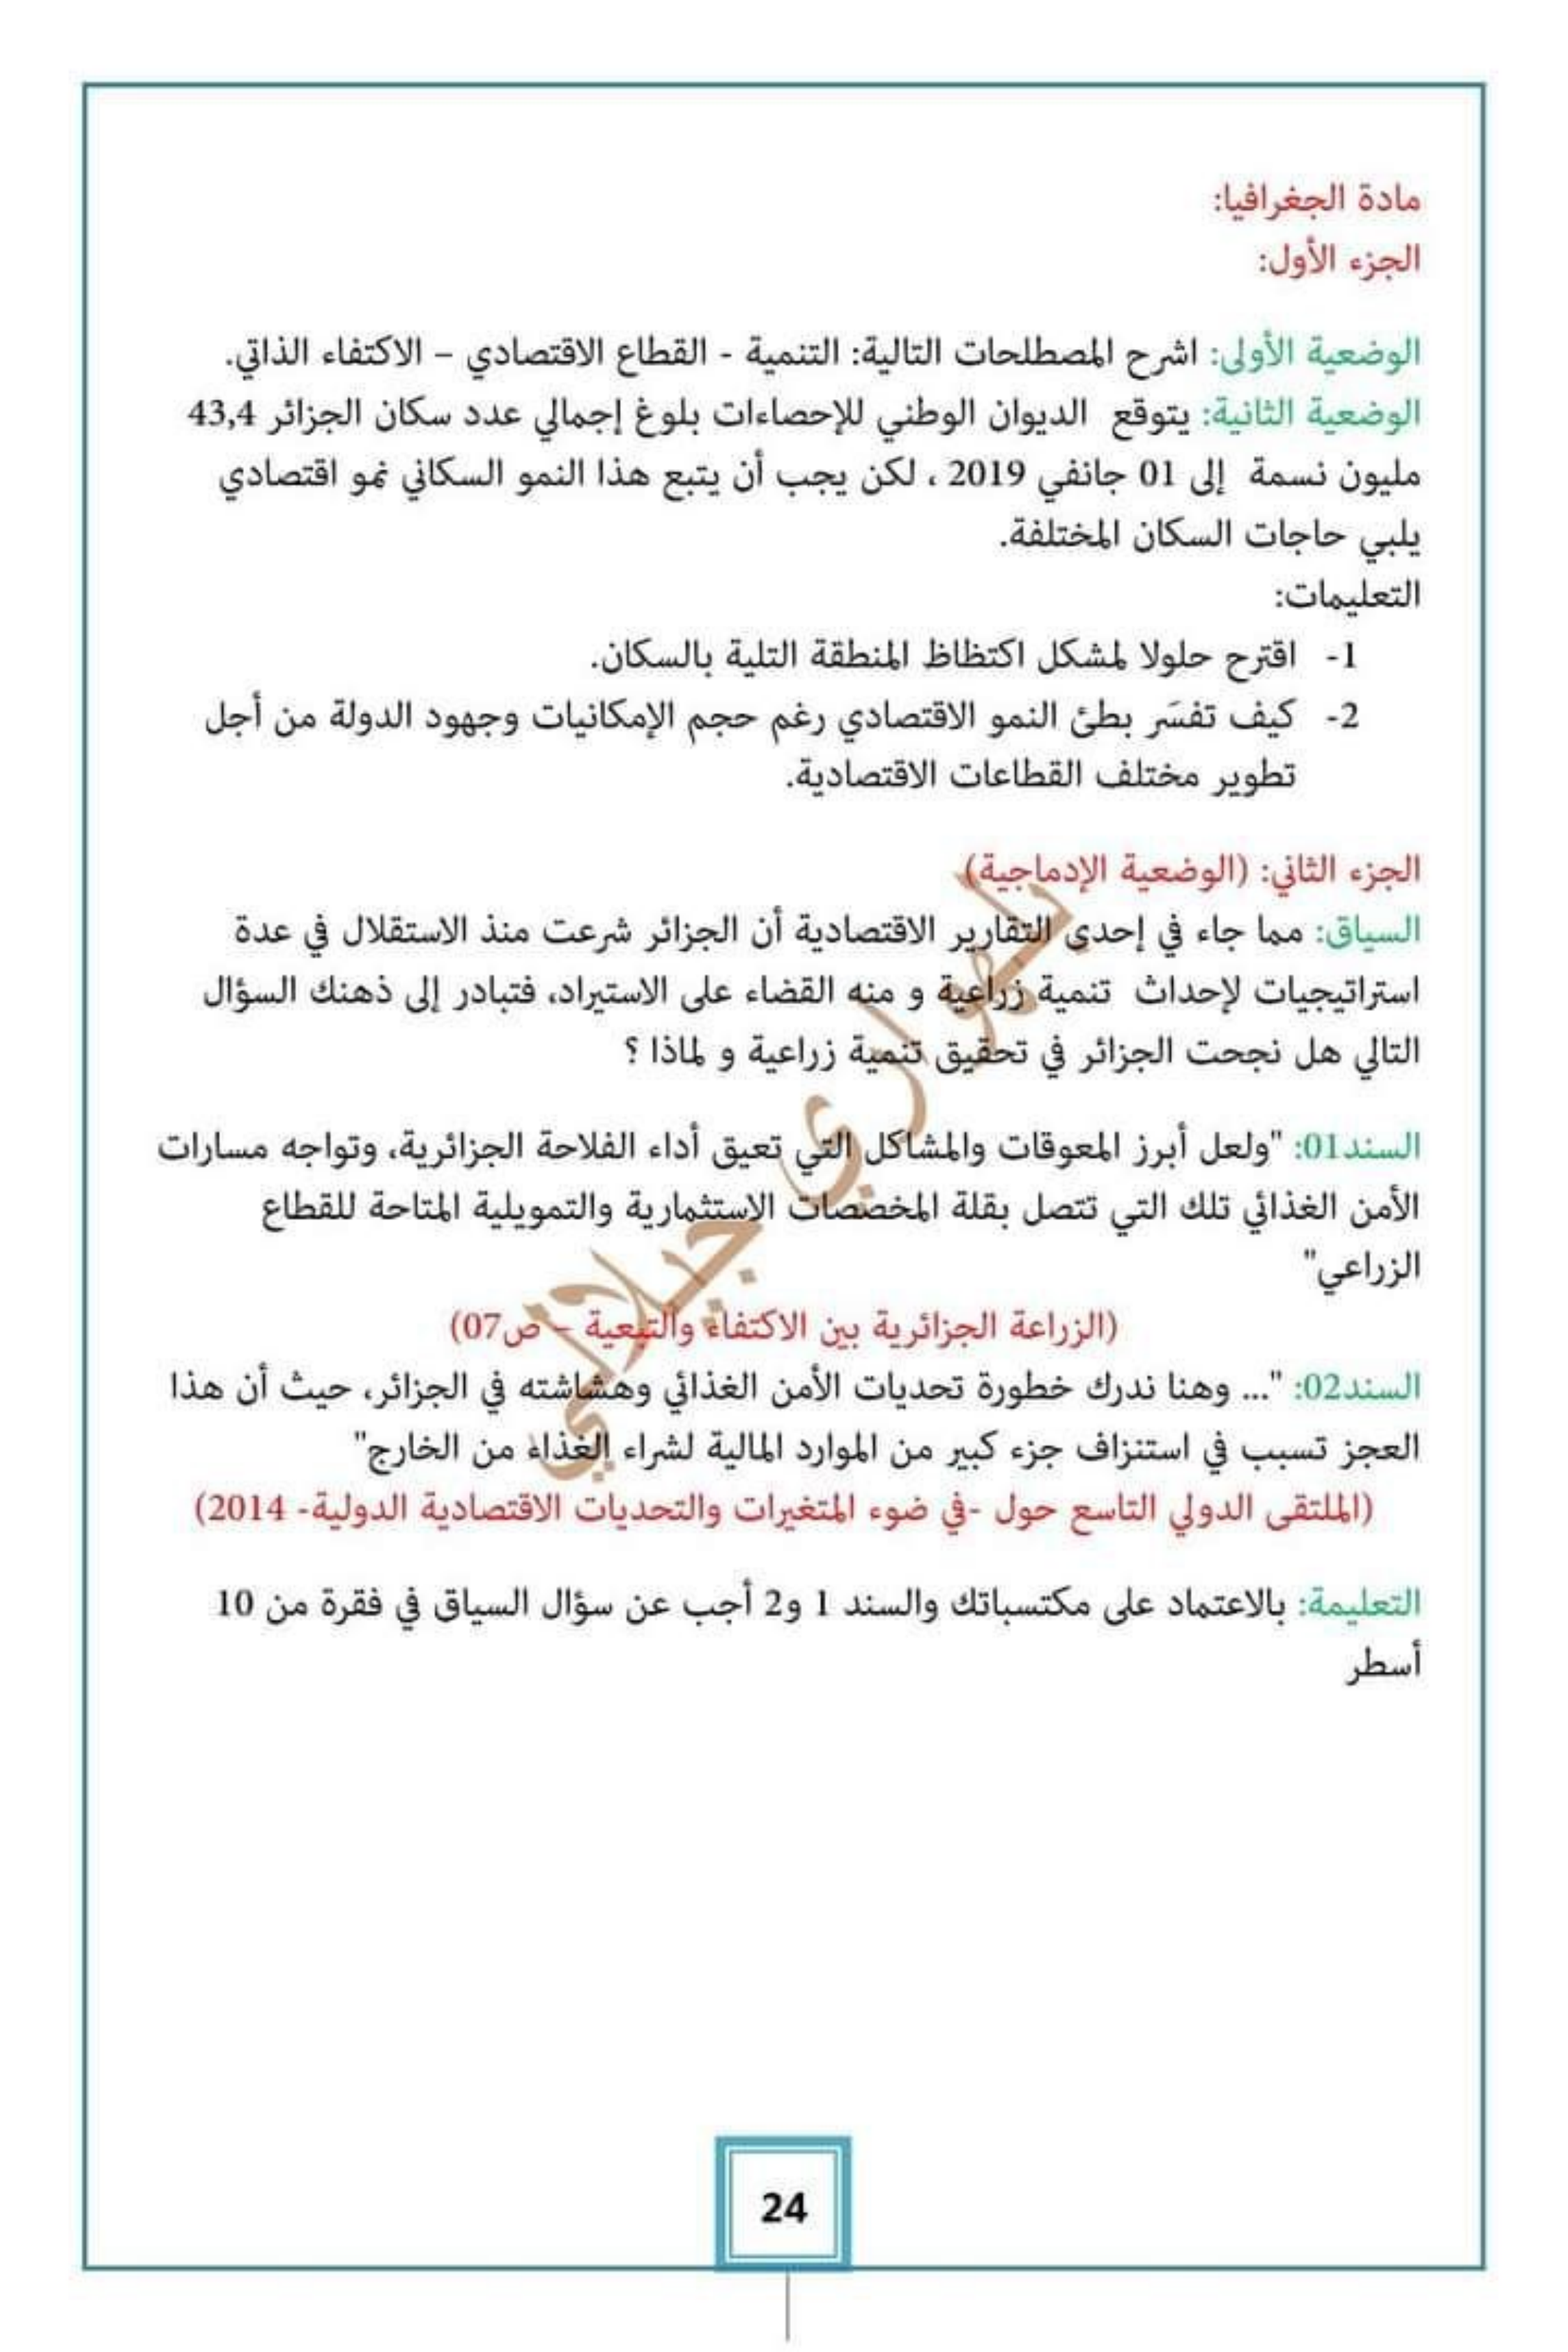 مادة الجغرافيا:
الجزء الأول:
الوضعية الأولى: اشرح المصطلحات التالية: التنمية - القطاع الاقتصادي – الاكتفاء الذاتي.
الوضعية الثانية: يتوقع الديوان الوطني للإحصاءات بلوغ إجمالي عدد سكان الجزائر 43,4
مليون نسمة إلى 01 جانفي 2019 ، لكن يجب أن يتبع هذا النمو السكاني نمو اقتصادي
يلبي حاجات السكان المختلفة.
التعليمات:
1- اقترح حلولا لمشكل اكتظاظ المنطقة التلية بالسكان.
2- كيف تفسَر بطئ النمو الاقتصادي رغم حجم الإمكانيات وجهود الدولة من أجل
تطوير مختلف القطاعات الاقتصادية.
الجزء الثاني: (الوضعية الإدماجية)
السياق: مما جاء في إحدى التقارير الاقتصادية أن الجزائر شرعت منذ الاستقلال في عدة
استراتيجيات لإحداث تنمية زراعية و منه القضاء على الاستيراد، فتبادر إلى ذهنك السؤال
التالي هل نجحت الجزائر في تحقيق تنمية زراعية و لماذا ؟
السند01: "ولعل أبرز المعوقات والمشاكل التي تعيق أداء الفلاحة الجزائرية، وتواجه مسارات
الأمن الغذائي تلك التي تتصل بقلة المخصصات الاستثمارية والتمويلية المتاحة للقطاع
الزراعي"
(الزراعة الجزائرية بين الاكتفاء والتبعية – ص07)
السند02: "... وهنا ندرك خطورة تحديات الأمن الغذائي وهشاشته في الجزائر، حيث أن هذا
العجز تسبب في استنزاف جزء كبير من الموارد المالية لشراء الغذاء من الخارج"
(الملتقى الدولي التاسع حول -في ضوء المتغيرات والتحديات الاقتصادية الدولية- 2014)
التعليمة: بالاعتماد على مكتسباتك والسند 1 و2 أجب عن سؤال السياق في فقرة من 10
أسطر
24